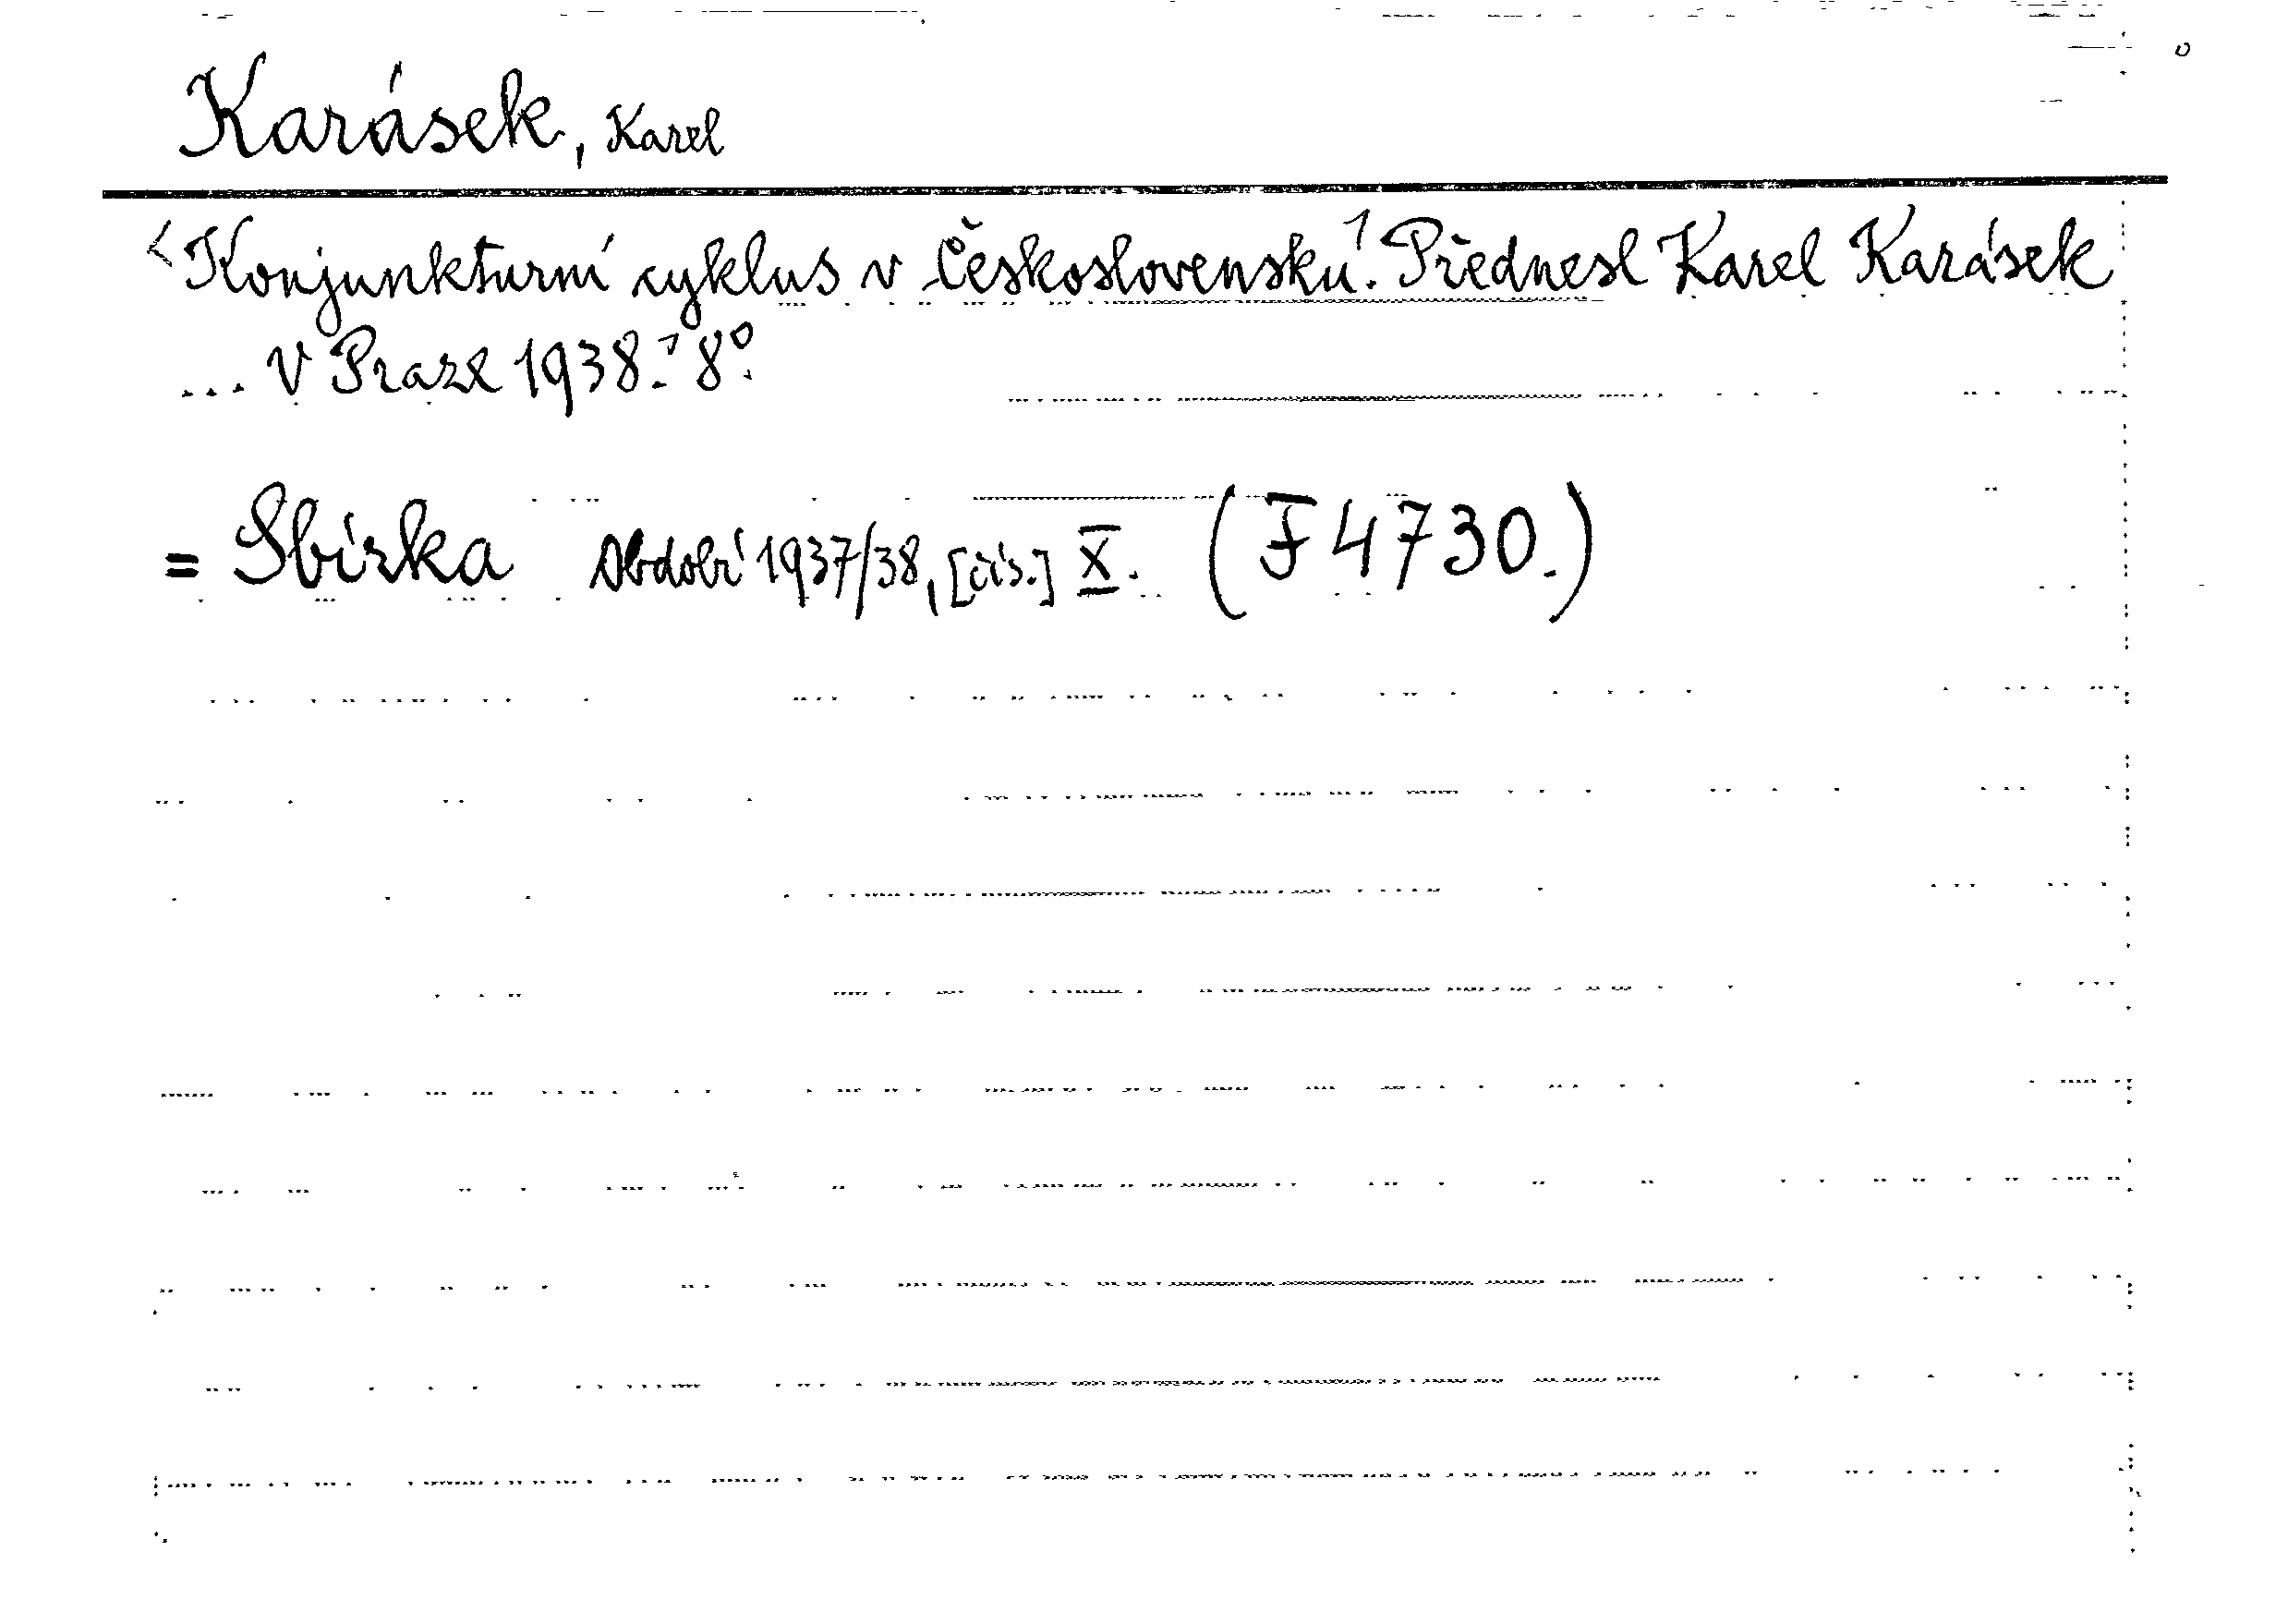 Karásek, Karel
<Konjunkturní cyklus v Československu¹. Přednesl Karel Karásek
... V Praze 1938.⁷ 8°.
= Sbírka Období 1937/38, [čís.] X. (F 4730.)